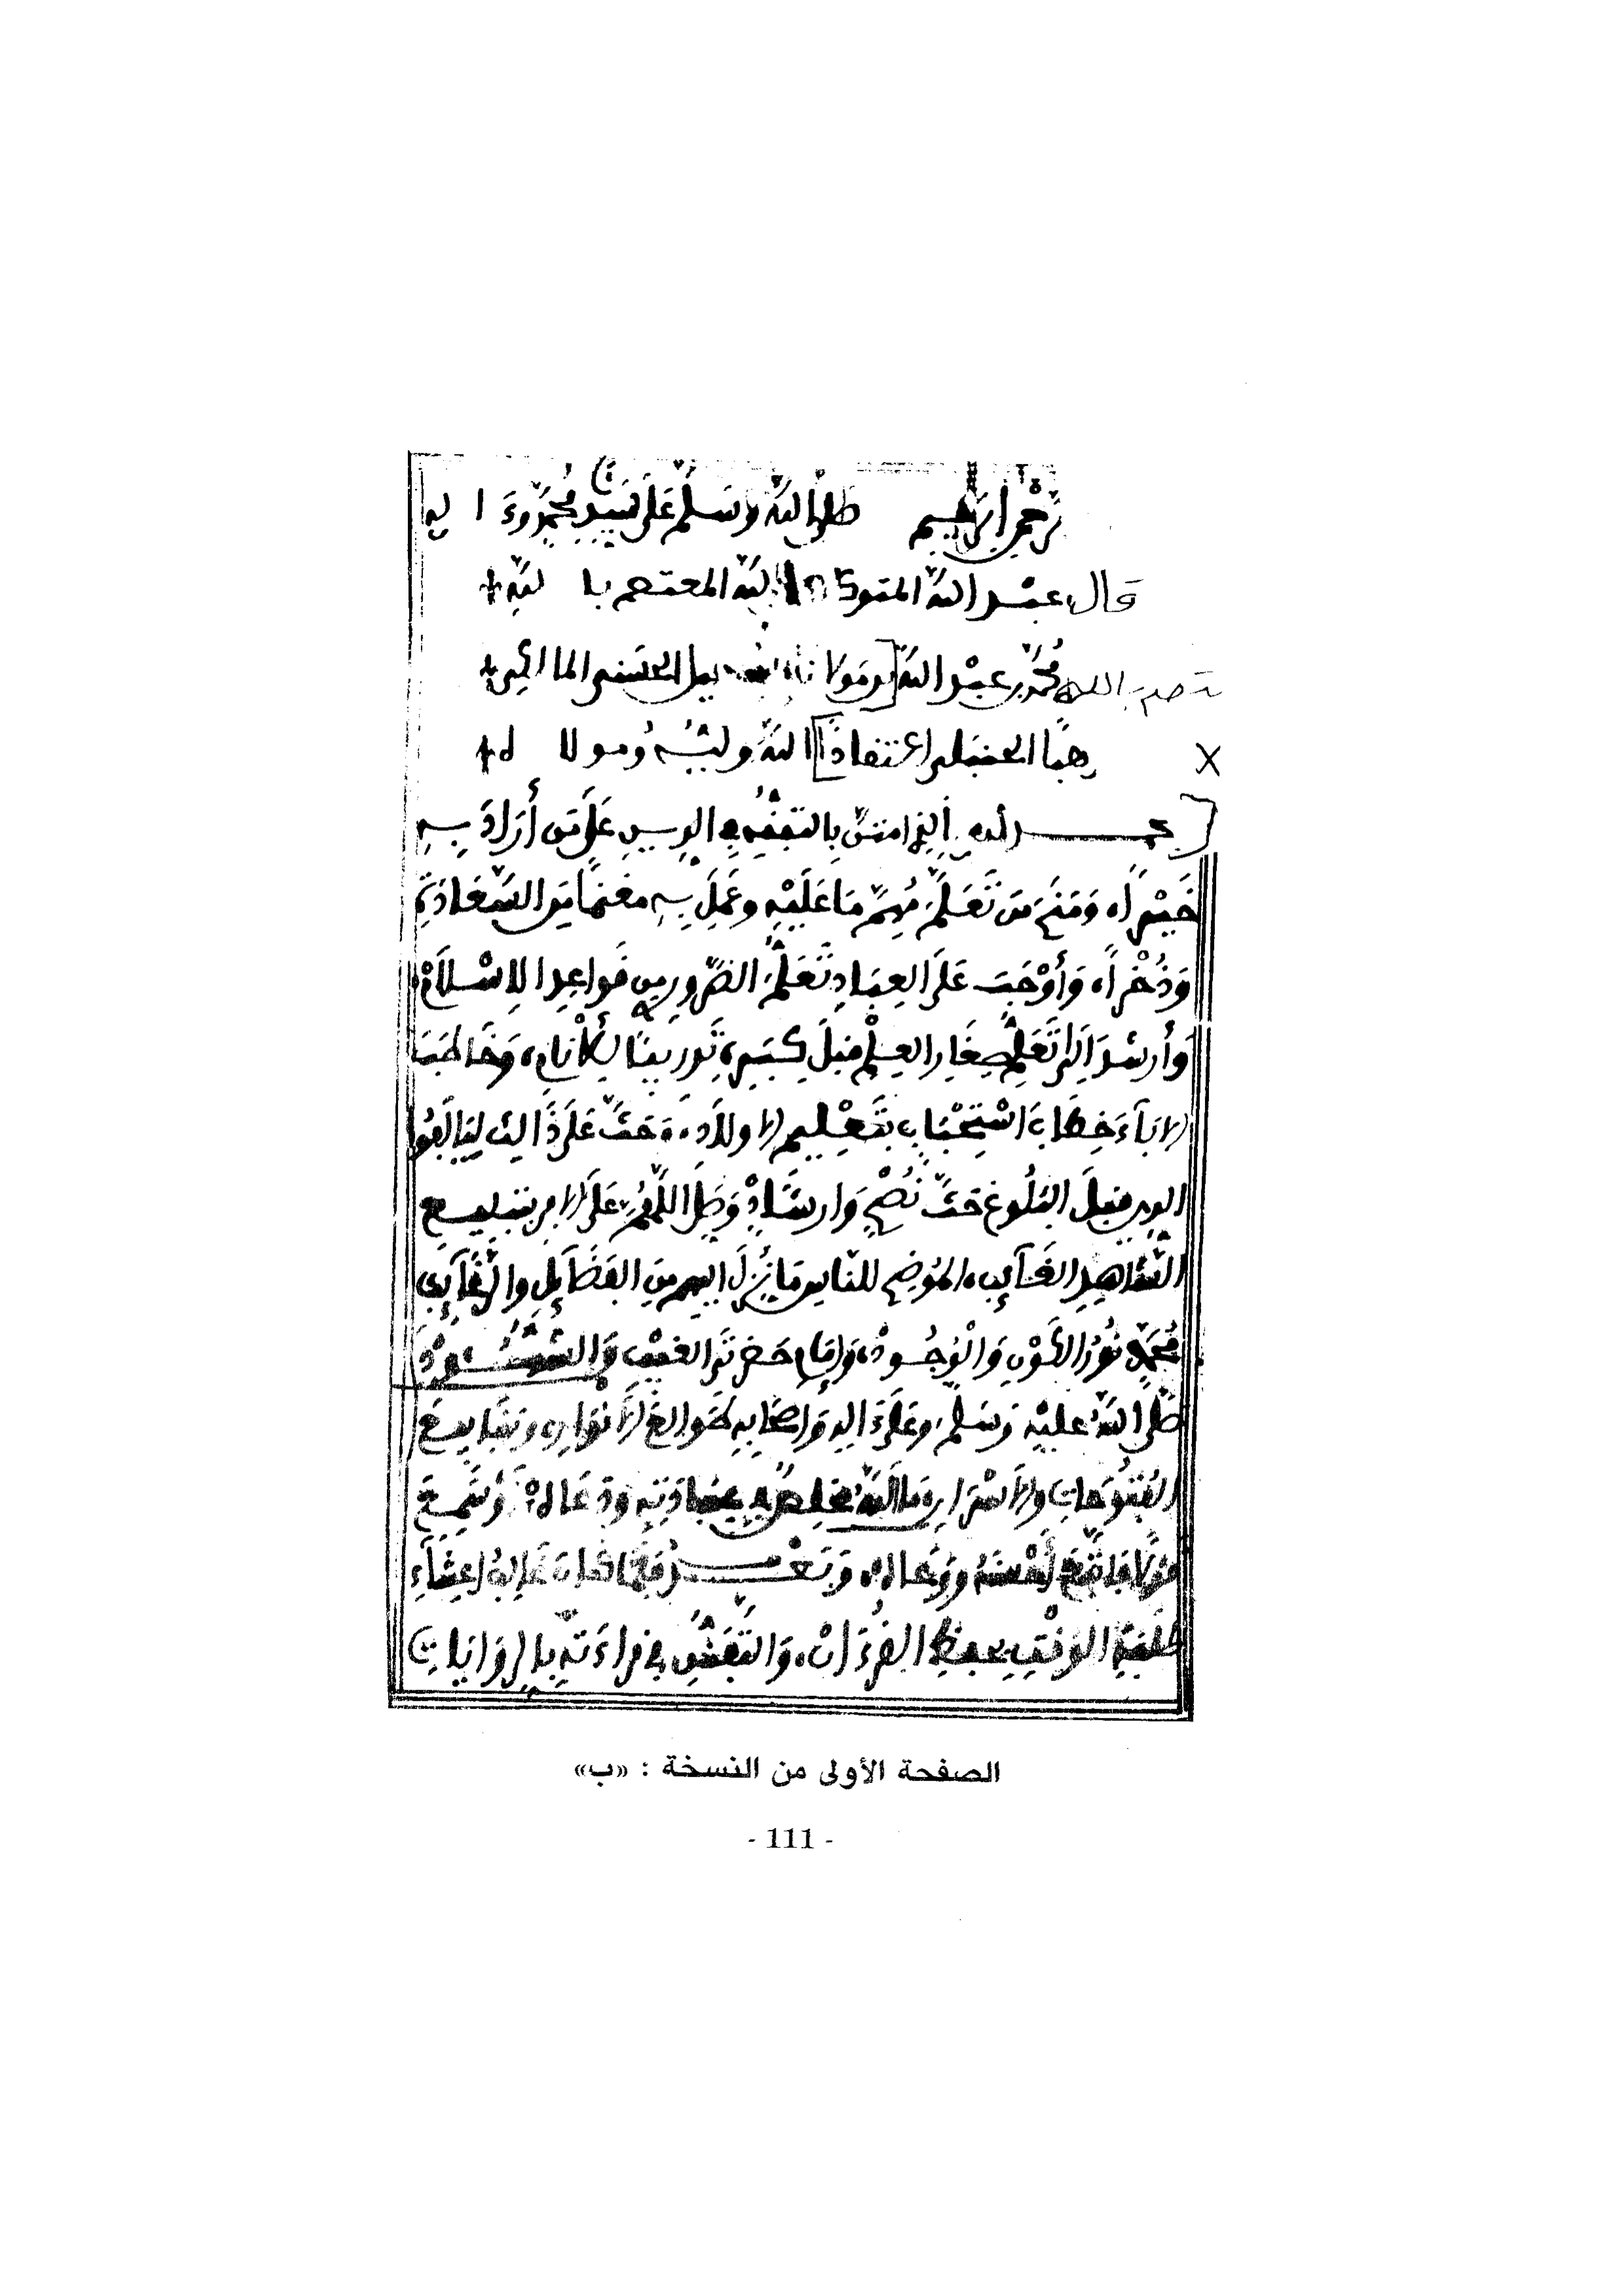 صلى الله وسلم على سيدنا محمد وءا له
قال عبد الله المتوكل على الله المعتصم با لله
محمد بن عبد الله بن مولانا الحسني المالكي
مذهبا الحنبلي اعتقادا الله وليه ومولا ه
الحمد لله الذي امتن بالتفقه في الدين على من أراد به
خيرا، ومنح من تعلم مهم ما عليه وعمل به مغنما من السعادة
وذخرا، وأوجب على العباد تعلم الضروري من قواعد الاسلام
وأرشد الى تعلم صغار العلم قبل كبره تدريبا وخاطب
الاباء خطاب استحباب بتعليم الاولاد، وحث على ذالك ليالفوا
الدين قبل البلوغ حث نصح وارشاد وصل اللهم على الامر بتبليغ
الشاهد الغائب، الموضح للناس ما نزل اليهم من الفضائل والرغائب
محمد نور الكون والوجود، وإمام حضرة الغيب والشهود
صلى الله عليه وسلم، وعلى ءاله وأصحابه طوالع الانوار، وينابيع
الفتوحات والاسرار، ما الله في عبادته ودعاه، وسمع
وبعد فلما كان اعتناء
طلبة الوقت بحفظ القرءان، والتفنن في قراءته بالروايات
الصفحة الأولى من النسخة : «ب»
- 111 -